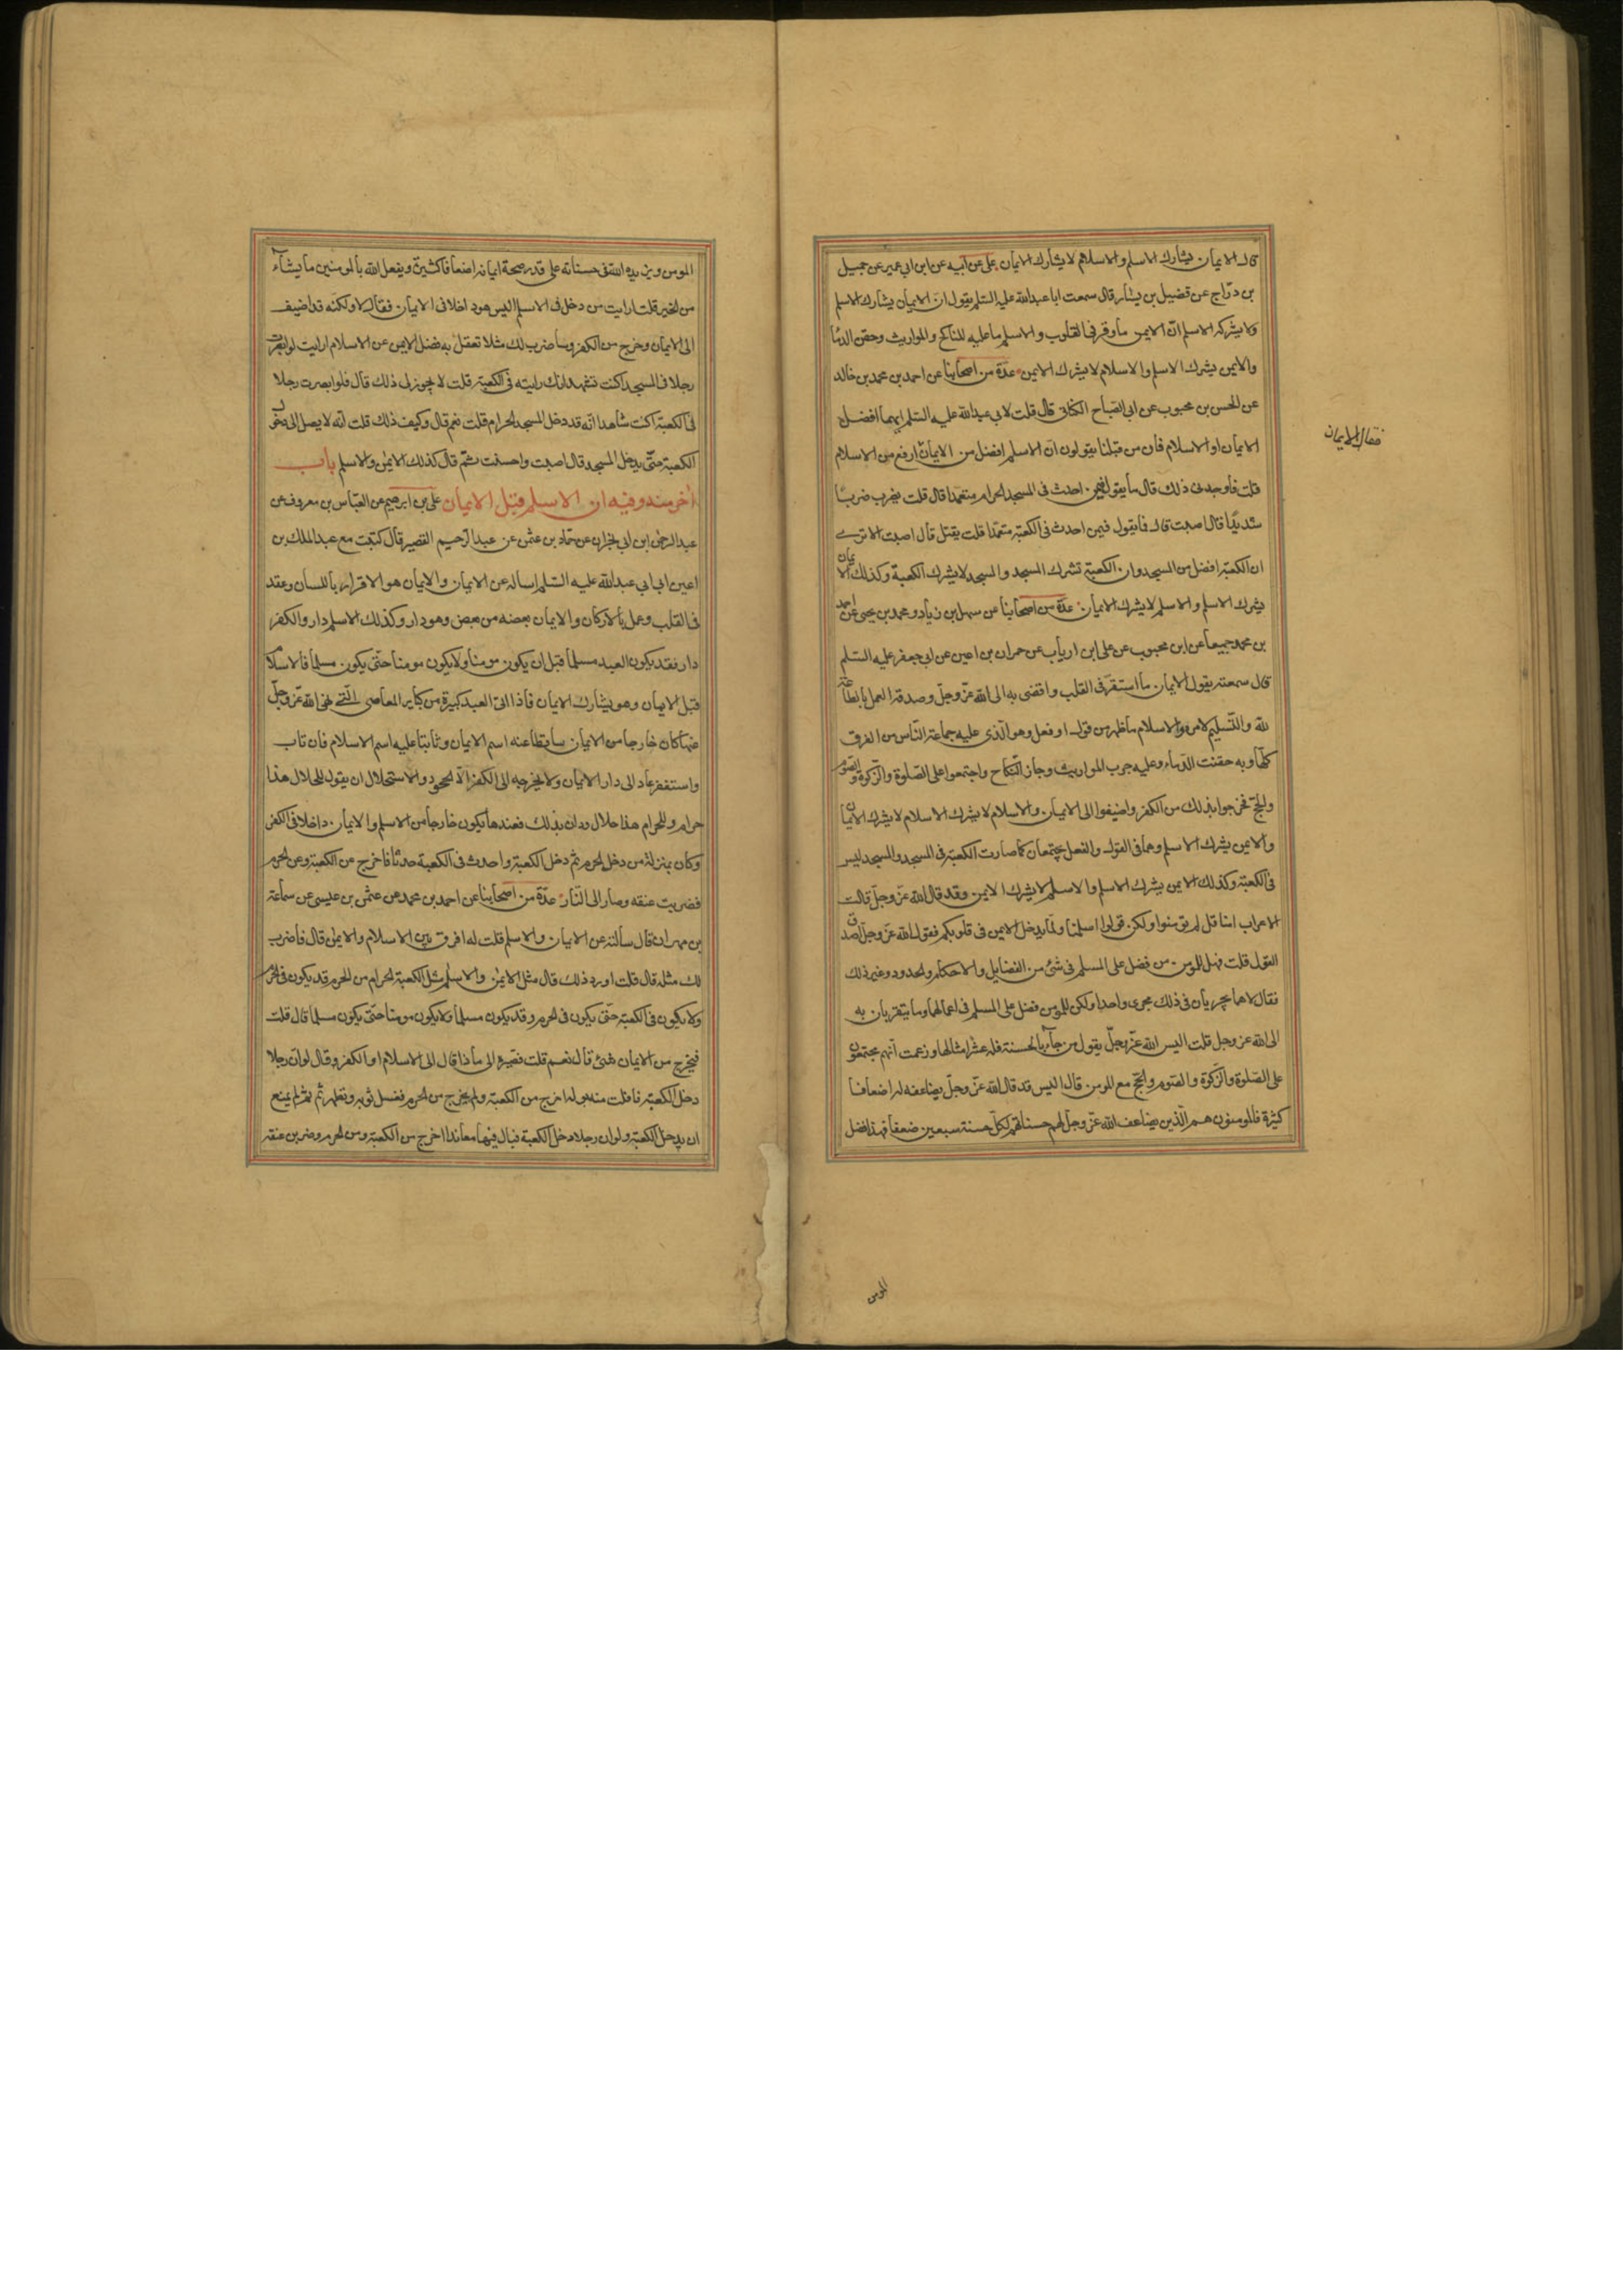 قال الايمان يشارك الاسلم والاسلام لا يشارك الايمان علي عن ابيه عن ابن ابي عمير عن جميل
بن درّاج عن فضيل بن يسار قال سمعت ابا عبدالله عليه السّلم يقول ان الايمان يشارك الاسلم
ولا يشركه الاسلم انّ الايمن ما وقر في القلوب والاسلم ما عليه المناكح والمواريث وحقن الدّمآ
والايمن يشرك الاسلم والاسلام لا يشرك الايمن عدّة من اصحابنا عن احمد بن محمد بن خالد
عن الحسن بن محبوب عن ابي الصّباح الكناني قال قلت لابي عبدالله عليه السّلم ايهما افضل
الايمان او الاسلام فان من قبلنا يقولون انّ الاسلم افضل من الايمان ارفع من الاسلام
فقال الايمان
قلت فاوجدني ذلك قال ما يقول فيمن احدث في المسجد الحرام متعمدا قال قلت يضرب ضربًا
شديدًا قال اصبت قال فما يقول فيمن احدث في الكعبة متعمّدا قلت يقتل قال اصبت الا ترى
ان الكعبة افضل من المسجد وان الكعبة تشرك المسجد والمسجد لا يشرك الكعبة وكذلك الايمان
يشرك الاسلم والاسلم لا يشرك الايمان عدّة من اصحابنا عن سهل بن زياد ومحمد بن يحيى عن احمد
بن محمد جميعا عن ابن محبوب عن علي ابن ارياب عن حمران بن اعين عن ابي جعفر عليه السّلم
قال سمعته يقول الايمان ما استقرّ في القلب وافضى به الى الله عزّ وجلّ وصدقه العمل بالطاعة
لله والتّسليم لامره والاسلام ما ظهر من قول او فعل وهو الّذي عليه جماعة النّاس من الفرق
كلّها وبه حقنت الدّماء وعليه جرت المواريث وجاز النّكاح واجتمعوا على الصّلوة والزّكوة والصّوم
والحجّ فخرجوا بذلك من الكفر واضيفوا الى الايمان والاسلام لا يشرك الاسلام لا يشرك الايمان
والايمن يشرك الاسلم وهما في القول والفعل يجتمعان كما صارت الكعبة في المسجد والمسجد ليس
في الكعبة وكذلك الايمن يشرك الاسلم والاسلم لا يشرك الايمن وقد قال الله عزّ وجلّ قالت
الاعراب امنا قل لم تؤمنوا ولكن قولوا اسلمنا ولمّا يدخل الايمن في قلوبكم فقول الله عزّ وجلّ اصدق
القول قلت فهل للمومن من فضل على المسلم في شئ من الفضايل والاحكام والحدود وغير ذلك
فقال لا هما يجريان في ذلك مجرى واحد ولكن للمومن فضل على المسلم في اعمالهما وما يتقربان به
الى الله عز وجل قلت اليس الله عزّ وجلّ يقول من جآء بالحسنة فله عشر امثالها وزعمت انهم مجتمعون
على الصّلوة والزكوة والصّوم والحجّ مع المومن قال اليس قد قال الله عزّ وجلّ يضاعفه له اضعافا
كثيرة فالمومنون هم الّذين يضاعف الله عزّ وجلّ لهم حسناتهم لكلّ حسنة سبعين ضعفا فهذا فضل
المومن
المومن ويزيده الله في حسناته على قدر صحة ايمانه اضعافا كثيرة ويفعل الله بالمومنين ما يشآء
من الخير قلت ارايت من دخل في الاسلم اليس هو داخلا في الايمان فقال لا ولكنّه قد اضيف
الى الايمان وخرج من الكفر وساضرب لك مثلا تعقل به فضل الايمن عن الاسلام ارايت لو ابصرت
رجلا في المسجد اكنت تشهد انك رايته في الكعبة قلت لا يجوز لي ذلك قال فلو ابصرت رجلا
في الكعبة اكنت شاهدا انّه قد دخل المسجد الحرام قلت نعم قال وكيف ذلك قلت انّه لا يصل الى دخول
الكعبة حتّى يدخل المسجد قال اصبت واحسنت ثمّ قال كذلك الايمان والاسلم باب
آخر منه وفيه ان الاسلم قبل الايمان علي بن ابرهيم عن العبّاس بن معروف عن
عبدالرحمن ابن ابي نجران عن حمّاد بن عثمن عن عبدالرّحيم القصير قال كتبت مع عبدالملك بن
اعين الى ابي عبدالله عليه السّلم اساله عن الايمان والايمان هو الاقرار باللسان وعقد
في القلب وعمل بالاركان والايمان بعضه من بعض وهو دار وكذلك الاسلم دار والكفر
دار فقد يكون العبد مسلما قبل ان يكون مومنا ولا يكون مومنا حتّى يكون مسلما فالاسلام
قبل الايمان وهو يشارك الايمان فاذا اتى العبد كبيرة من كباير المعاصي الّتي نهى الله عزّ وجلّ
عنها كان خارجا من الايمان ساقطا عنه اسم الايمان وثابتا عليه اسم الاسلام فان تاب
واستغفر عاد الى دار الايمان ولا يخرجه الى الكفر الّا الجحود والاستحلال ان يقول للحلال هذا
حرام وللحرام هذا حلال ودان بذلك فعندها يكون خارجا من الاسلم والايمان داخلا في الكفر
وكان بمنزلة من دخل الحرم ثم دخل الكعبة واحدث في الكعبة حدثا فاخرج عن الكعبة وعن الحرم
فضربت عنقه وصار الى النّار عدّة من اصحابنا عن احمد بن محمد عن عثمن بن عيسى عن سماعة
بن مهران قال سألته عن الايمان والاسلم قلت له افرق بين الاسلام والايمان قال فاضرب
لك مثله قال قلت اورد ذلك قال مثل الايمان والاسلم مثل الكعبة الحرام من الحرم قد يكون في الحرم
ولا يكون في الكعبة حتّى يكون في الحرم وقد يكون مسلما ولا يكون مومنا حتّى يكون مسلما قال قلت
فيخرج من الايمان شئ قال نعم قلت فصيره الى ماذا قال الى الاسلام او الكفر وقال لو انّ رجلا
دخل الكعبة فافلت منه بوله اخرج من الكعبة ولم يخرج من الحرم فغسل ثوبه وتطهر ثم لم يمنع
ان يدخل الكعبة ولو ان رجلا دخل الكعبة فبال فيها معاندا اخرج من الكعبة ومن الحرم وضربت عنقه